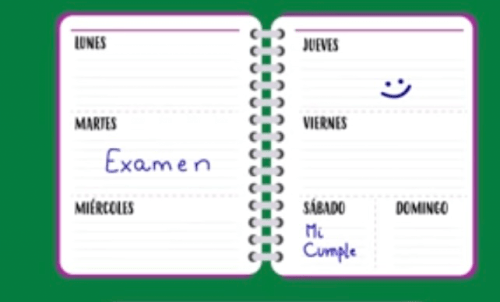 LUNES
MARTES
Examen
MIÉRCOLES
JUEVES
VIERNES
SÁBADO
Mi
Cumple
DOMINGO